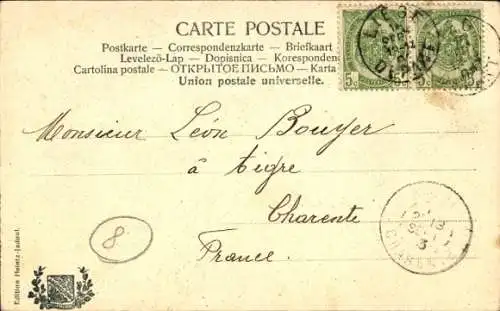 CARTE POSTALE
Postkarte — Correspondenzkarte — Briefkaart
Levelezö-Lap — Dopisnica — Korespondenz
Cartolina postale — ОТКРЫТОЕ ПИСЬМО — Karta
Union postale universelle.
5c
Monsieur Léon Bouyer
à Aigre
Charente
France.
8
Edition Heintz-Jadoul.